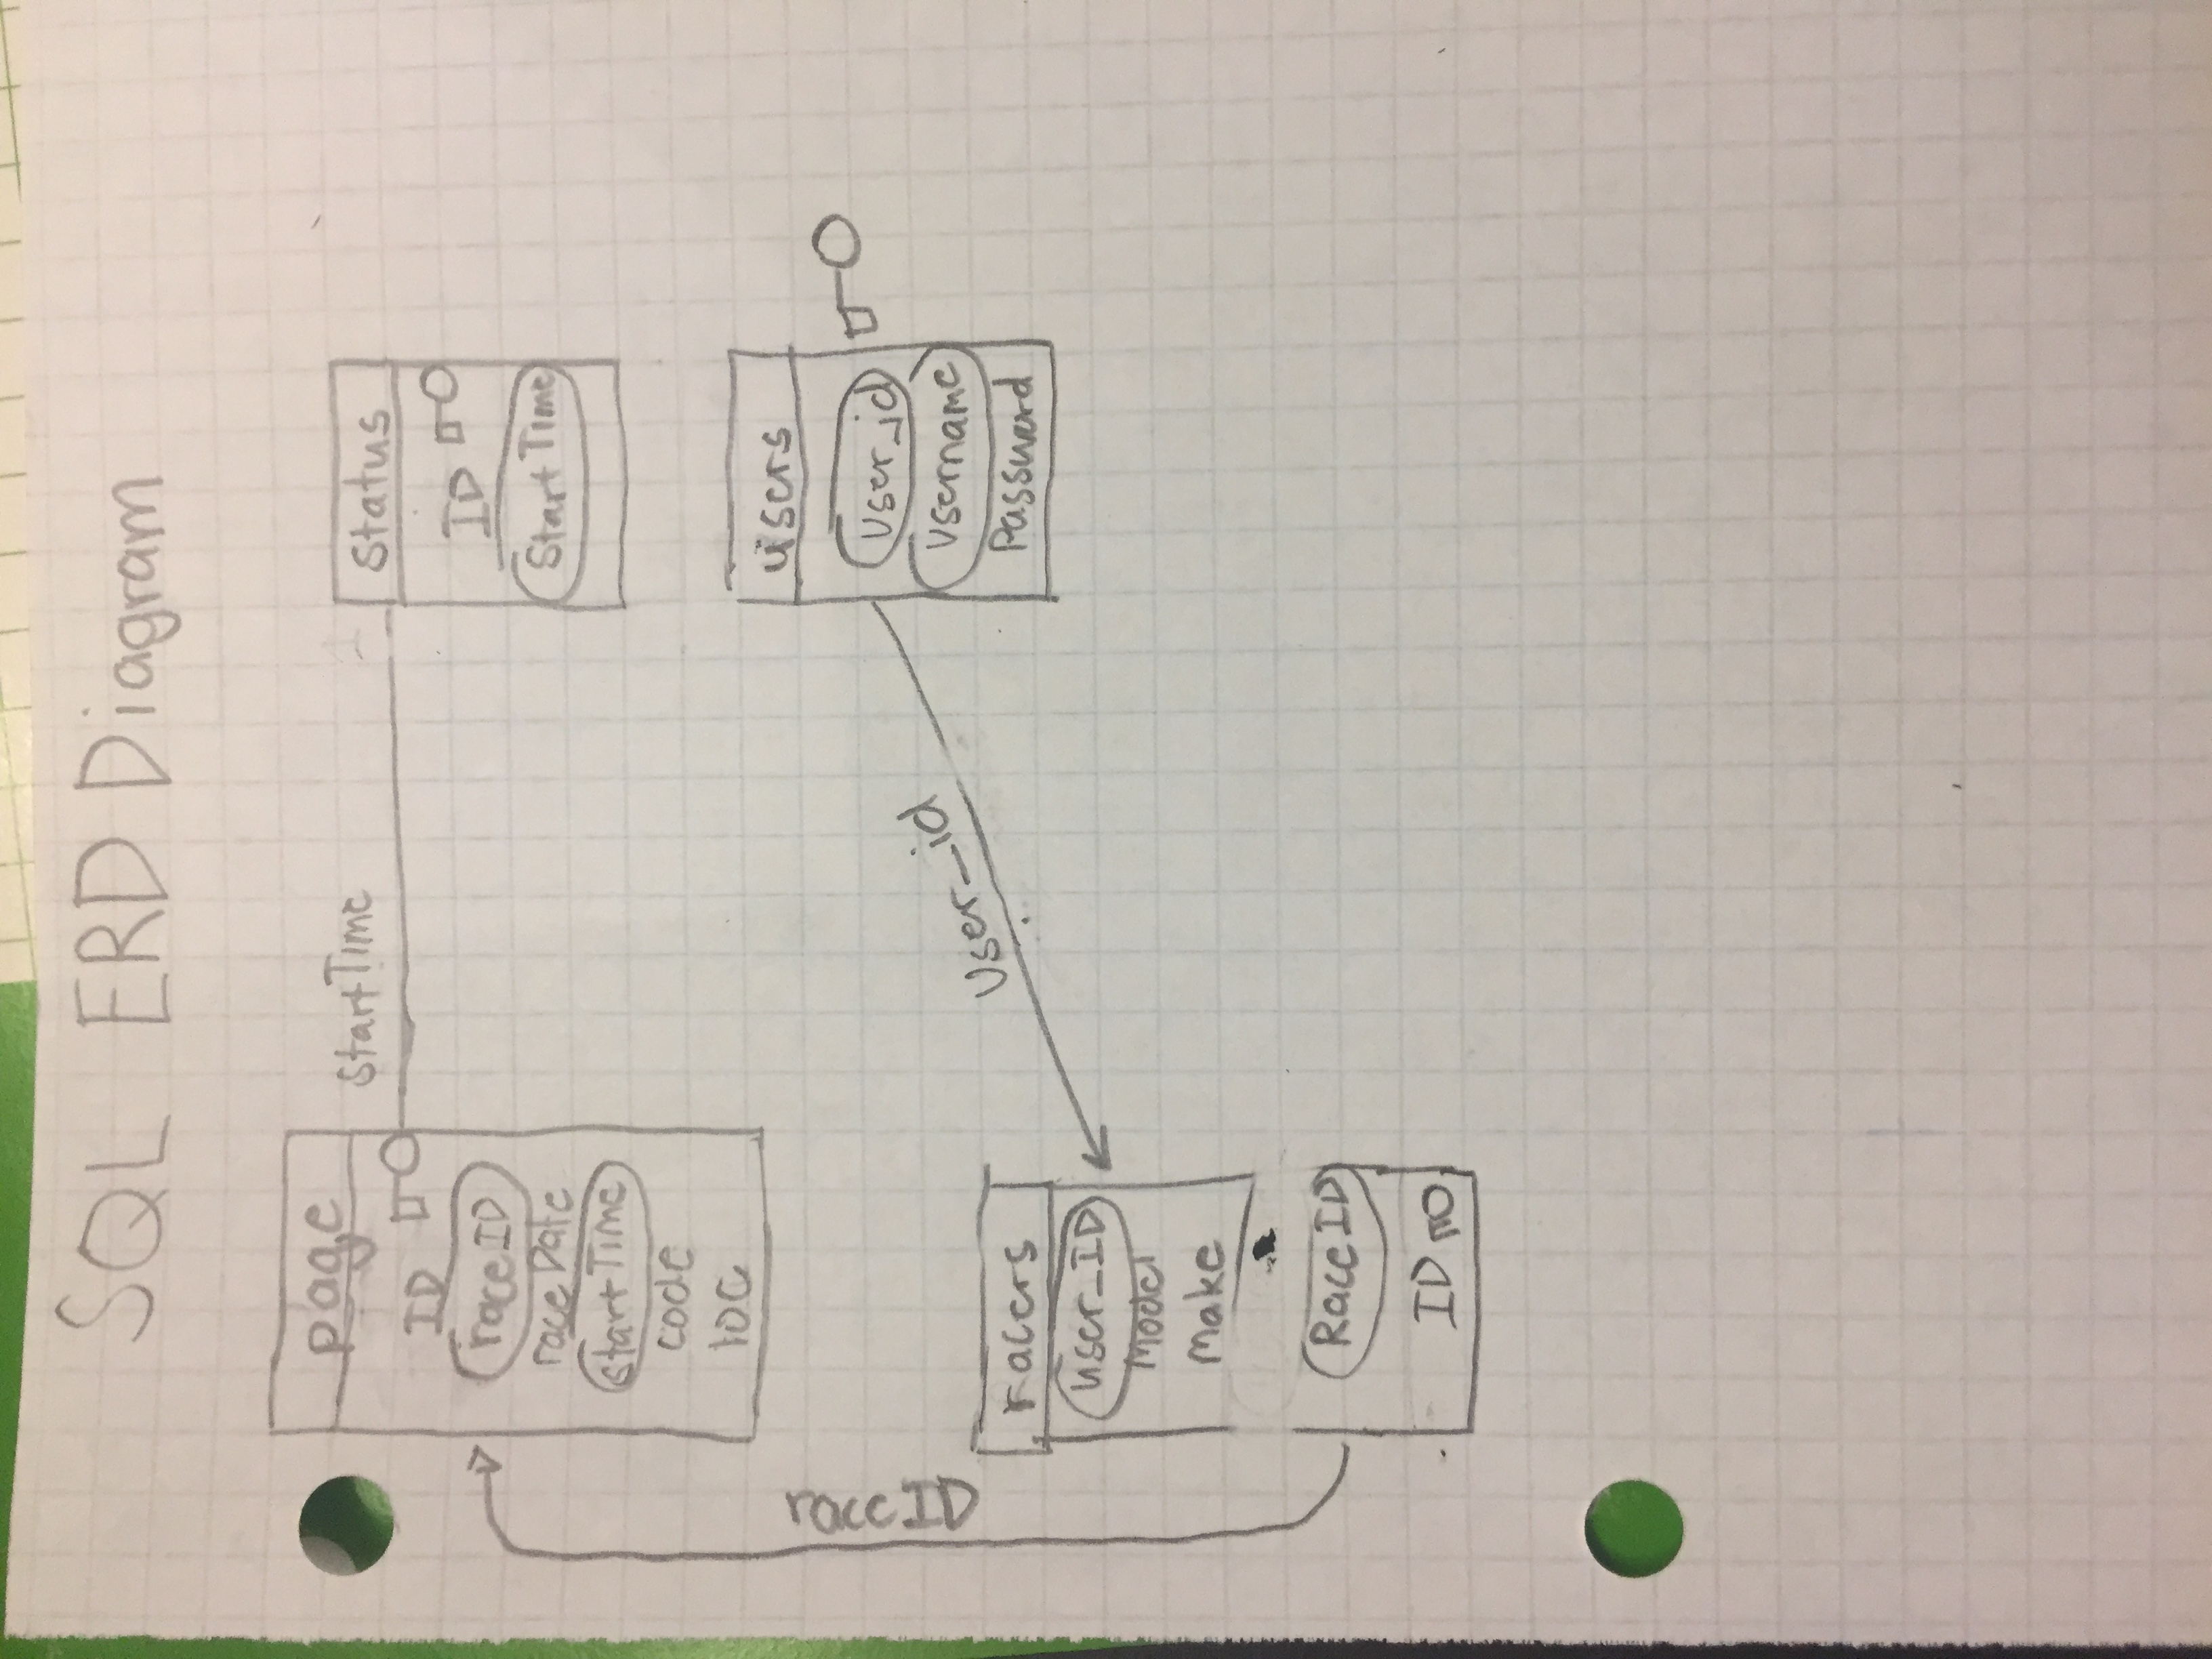 SQL ERD Diagram
page
ID
raceID
raceDate
startTime
code
loc
StartTime
Status
ID
StartTime
users
User_id
Username
Password
User_id
raceID
racers
user_ID
Model
Make
RaceID
ID